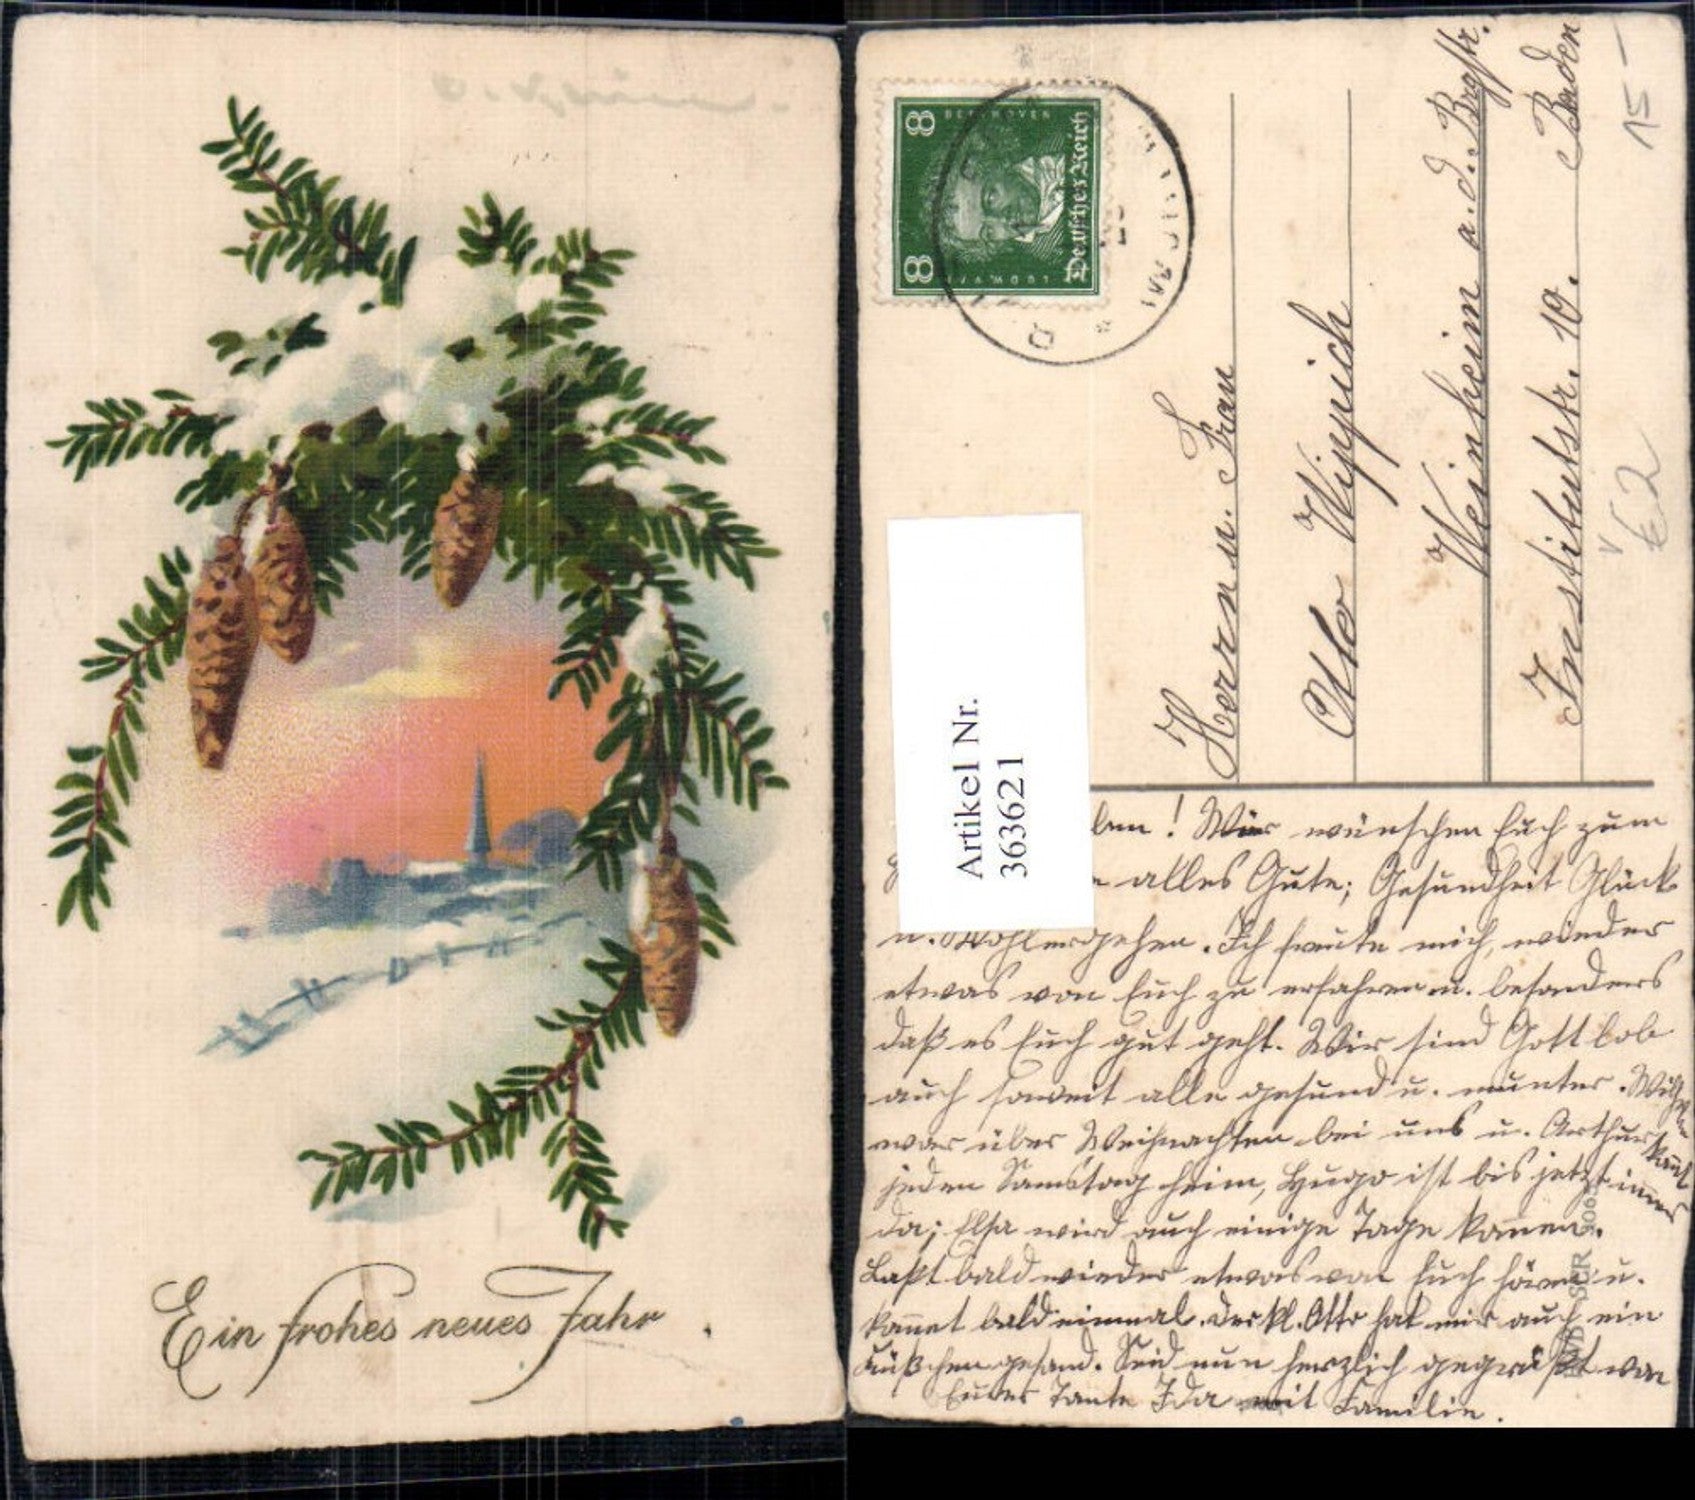 Ein frohes neues Jahr
8 8
Deutsches Reich
Herrn u. Frau
Otto Wippich
Weinheim a. d. Brgstr.
Institutstr. 10. Baden
15 -
€2
Artikel Nr.
363621
! Wir wünschen Euch zum
alles Gute; Gesundheit Glück
u. Wohlergehen. Ich freute mich, wieder
etwas von Euch zu erfahren u. besonders
daß es Euch gut geht. Wir sind Gott lob
auch soweit alle gesund u. munter.
war über Weihnachten bei uns u. Arthur kommt
jeden Samstag heim, Hugo ist bis jetzt immer
da; Elsa wird auch einige Tage kommen.
Laßt bald wieder etwas von Euch hören u.
kommt bald einmal. Der kl. Otto hat mir auch ein
Küßchen gesand. Seid nun herzlich gegrüßt von
Eurer Tante Ida mit Familie.